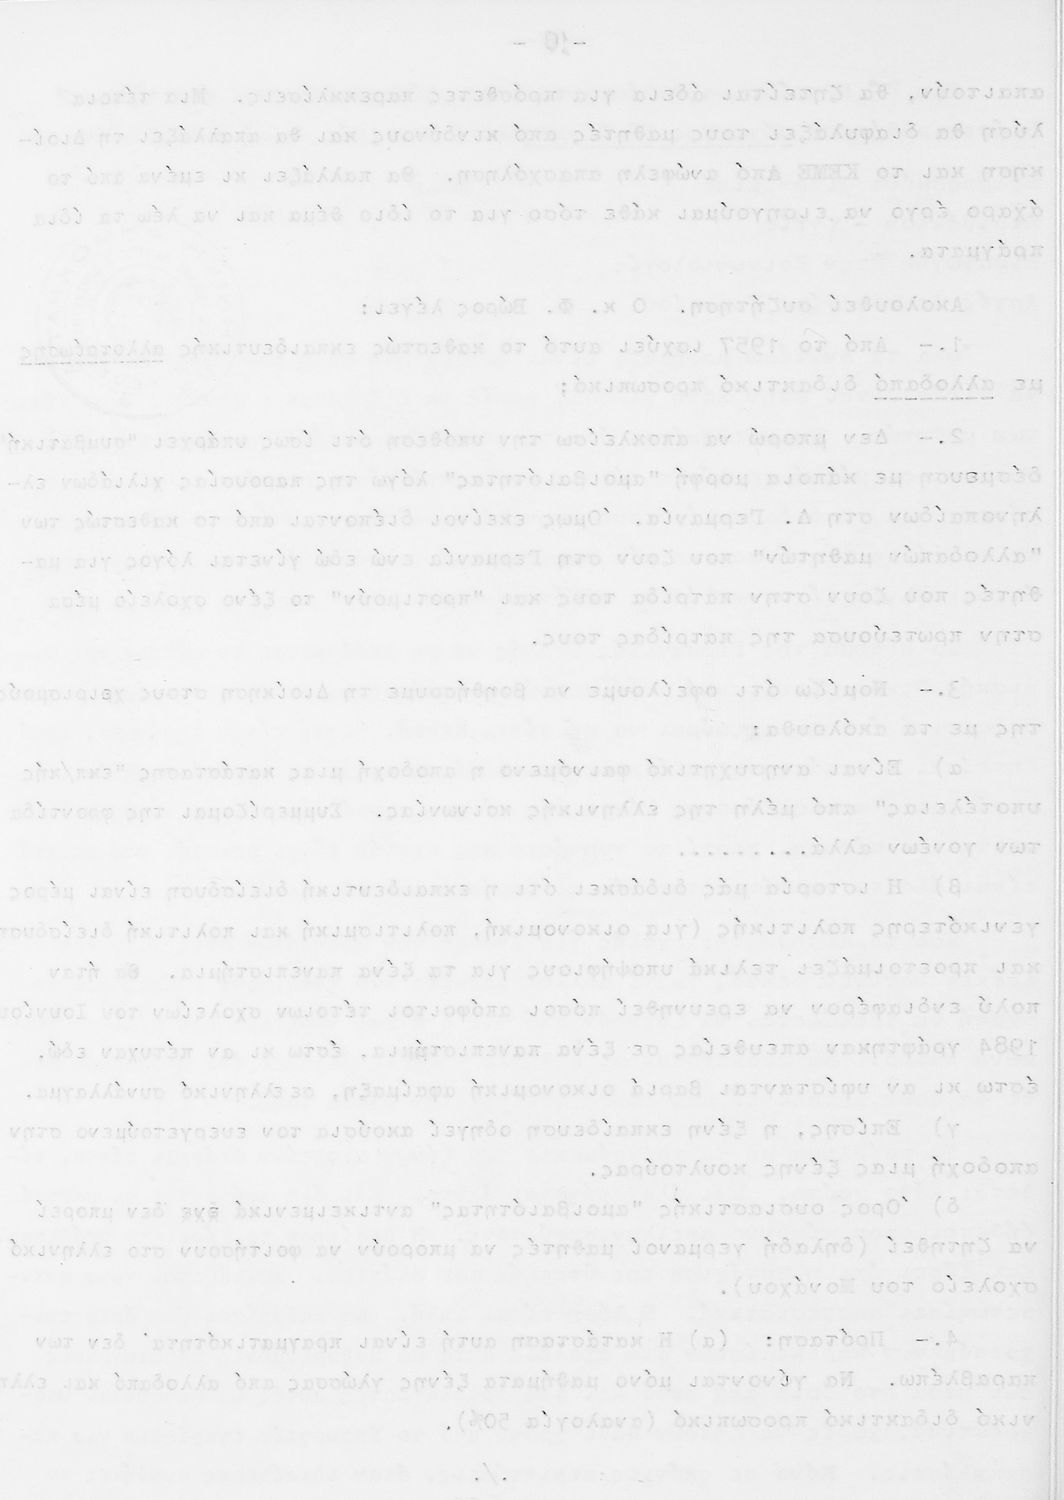 - 10 -
απαιτούν, θα ζητείται άδεια για πρόσθετες παρεκκλίσεις. Μια τέτοια
λύση θα διαφυλάξει τους μαθητές από κινδύνους και θα απαλλάξει τη Διοί-
κηση και το ΚΕΜΕ από ανώφελη απασχόληση. Θα παλλάξει κι εμένα από το
άχαρο έργο να εισηγούμαι κάθε τόσο για το ίδιο θέμα και να λέω τα ίδια
πράγματα.
Ακολουθεί συζήτηση. Ο κ. Φ. Βώρος λέγει:
1.- Από το 1957 ισχύει αυτό το καθεστώς εκπαιδευτικής αλλοτρίωσης
με αλλοδαπό διδακτικό προσωπικό;
2.- Δεν μπορώ να αποκλείσω την υπόθεση ότι ίσως υπάρχει "συμβατική"
δέσμευση με κάποια μορφή "αμοιβαιότητας" λόγω της παρουσίας χιλιάδων ελ-
ληνοπαίδων στη Δ. Γερμανία. Όμως εκείνοι διέπονται από το καθεστώς των
"αλλοδαπών μαθητών" που ζουν στη Γερμανία ενώ εδώ γίνεται λόγος για μα-
θητές που ζουν στην πατρίδα τους και "προτιμούν" το ξένο σχολείο μέσα
στην πρωτεύουσα της πατρίδας τους.
3.- Νομίζω ότι οφείλουμε να βοηθήσουμε τη Διοίκηση στους χειρισμούς
της με τα ακόλουθα:
α) Είναι ανησυχητικό φαινόμενο η αποδοχή μιας κατάστασης "εκπ/κής
υποτέλειας" από μέλη της ελληνικής κοινωνίας. Συμμερίζομαι της φροντίδα
των γονέων αλλά.........
β) Η ιστορία μάς διδάσκει ότι η εκπαιδευτική διείσδυση είναι μέρος
γενικότερης πολιτικής (για οικονομική, πολιτισμική και πολιτική διείσδυση
και προετοιμάζει τελικά υποψήφιους για τα ξένα πανεπιστήμια. Θα ήταν
πολύ ενδιαφέρον να ερευνηθεί πόσοι απόφοιτοι τέτοιων σχολείων τον Ιουνίου
1984 γράφτηκαν απευθείας σε ξένα πανεπιστήμια, έστω κι αν πέτυχαν εδώ,
έστω κι αν υφίστανται βαριά οικονομική αφαίμαξη, σε ελληνικό συνάλλαγμα.
γ) Επίσης, η ξένη εκπαίδευση οδηγεί ακούσια τον ευεργετούμενο στην
αποδοχή μιας ξένης κουλτούρας.
δ) Όρος ουσιαστικής "αμοιβαιότητας" αντικειμενικά δεν μπορεί
να ζητηθεί (δηλαδή γερμανοί μαθητές να μπορούν να φοιτήσουν στο ελληνικό
σχολείο του Μονάχου).
4.- Πρόταση: (α) Η κατάσταση αυτή είναι πραγματικότητα, δεν των
παραβλέπω. Να γίνονται μόνο μαθήματα ξένης γλώσσας από αλλοδαπό και ελλη
νικό διδακτικό προσωπικό (αναλογία 50%).
./.